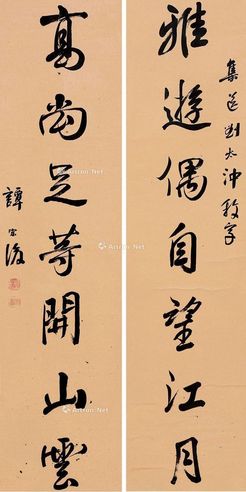 集送劉太沖敘字
雅遊偶自望江月
高尚足等開山雲
譚宗浚
Artron.Net
Artron.Net